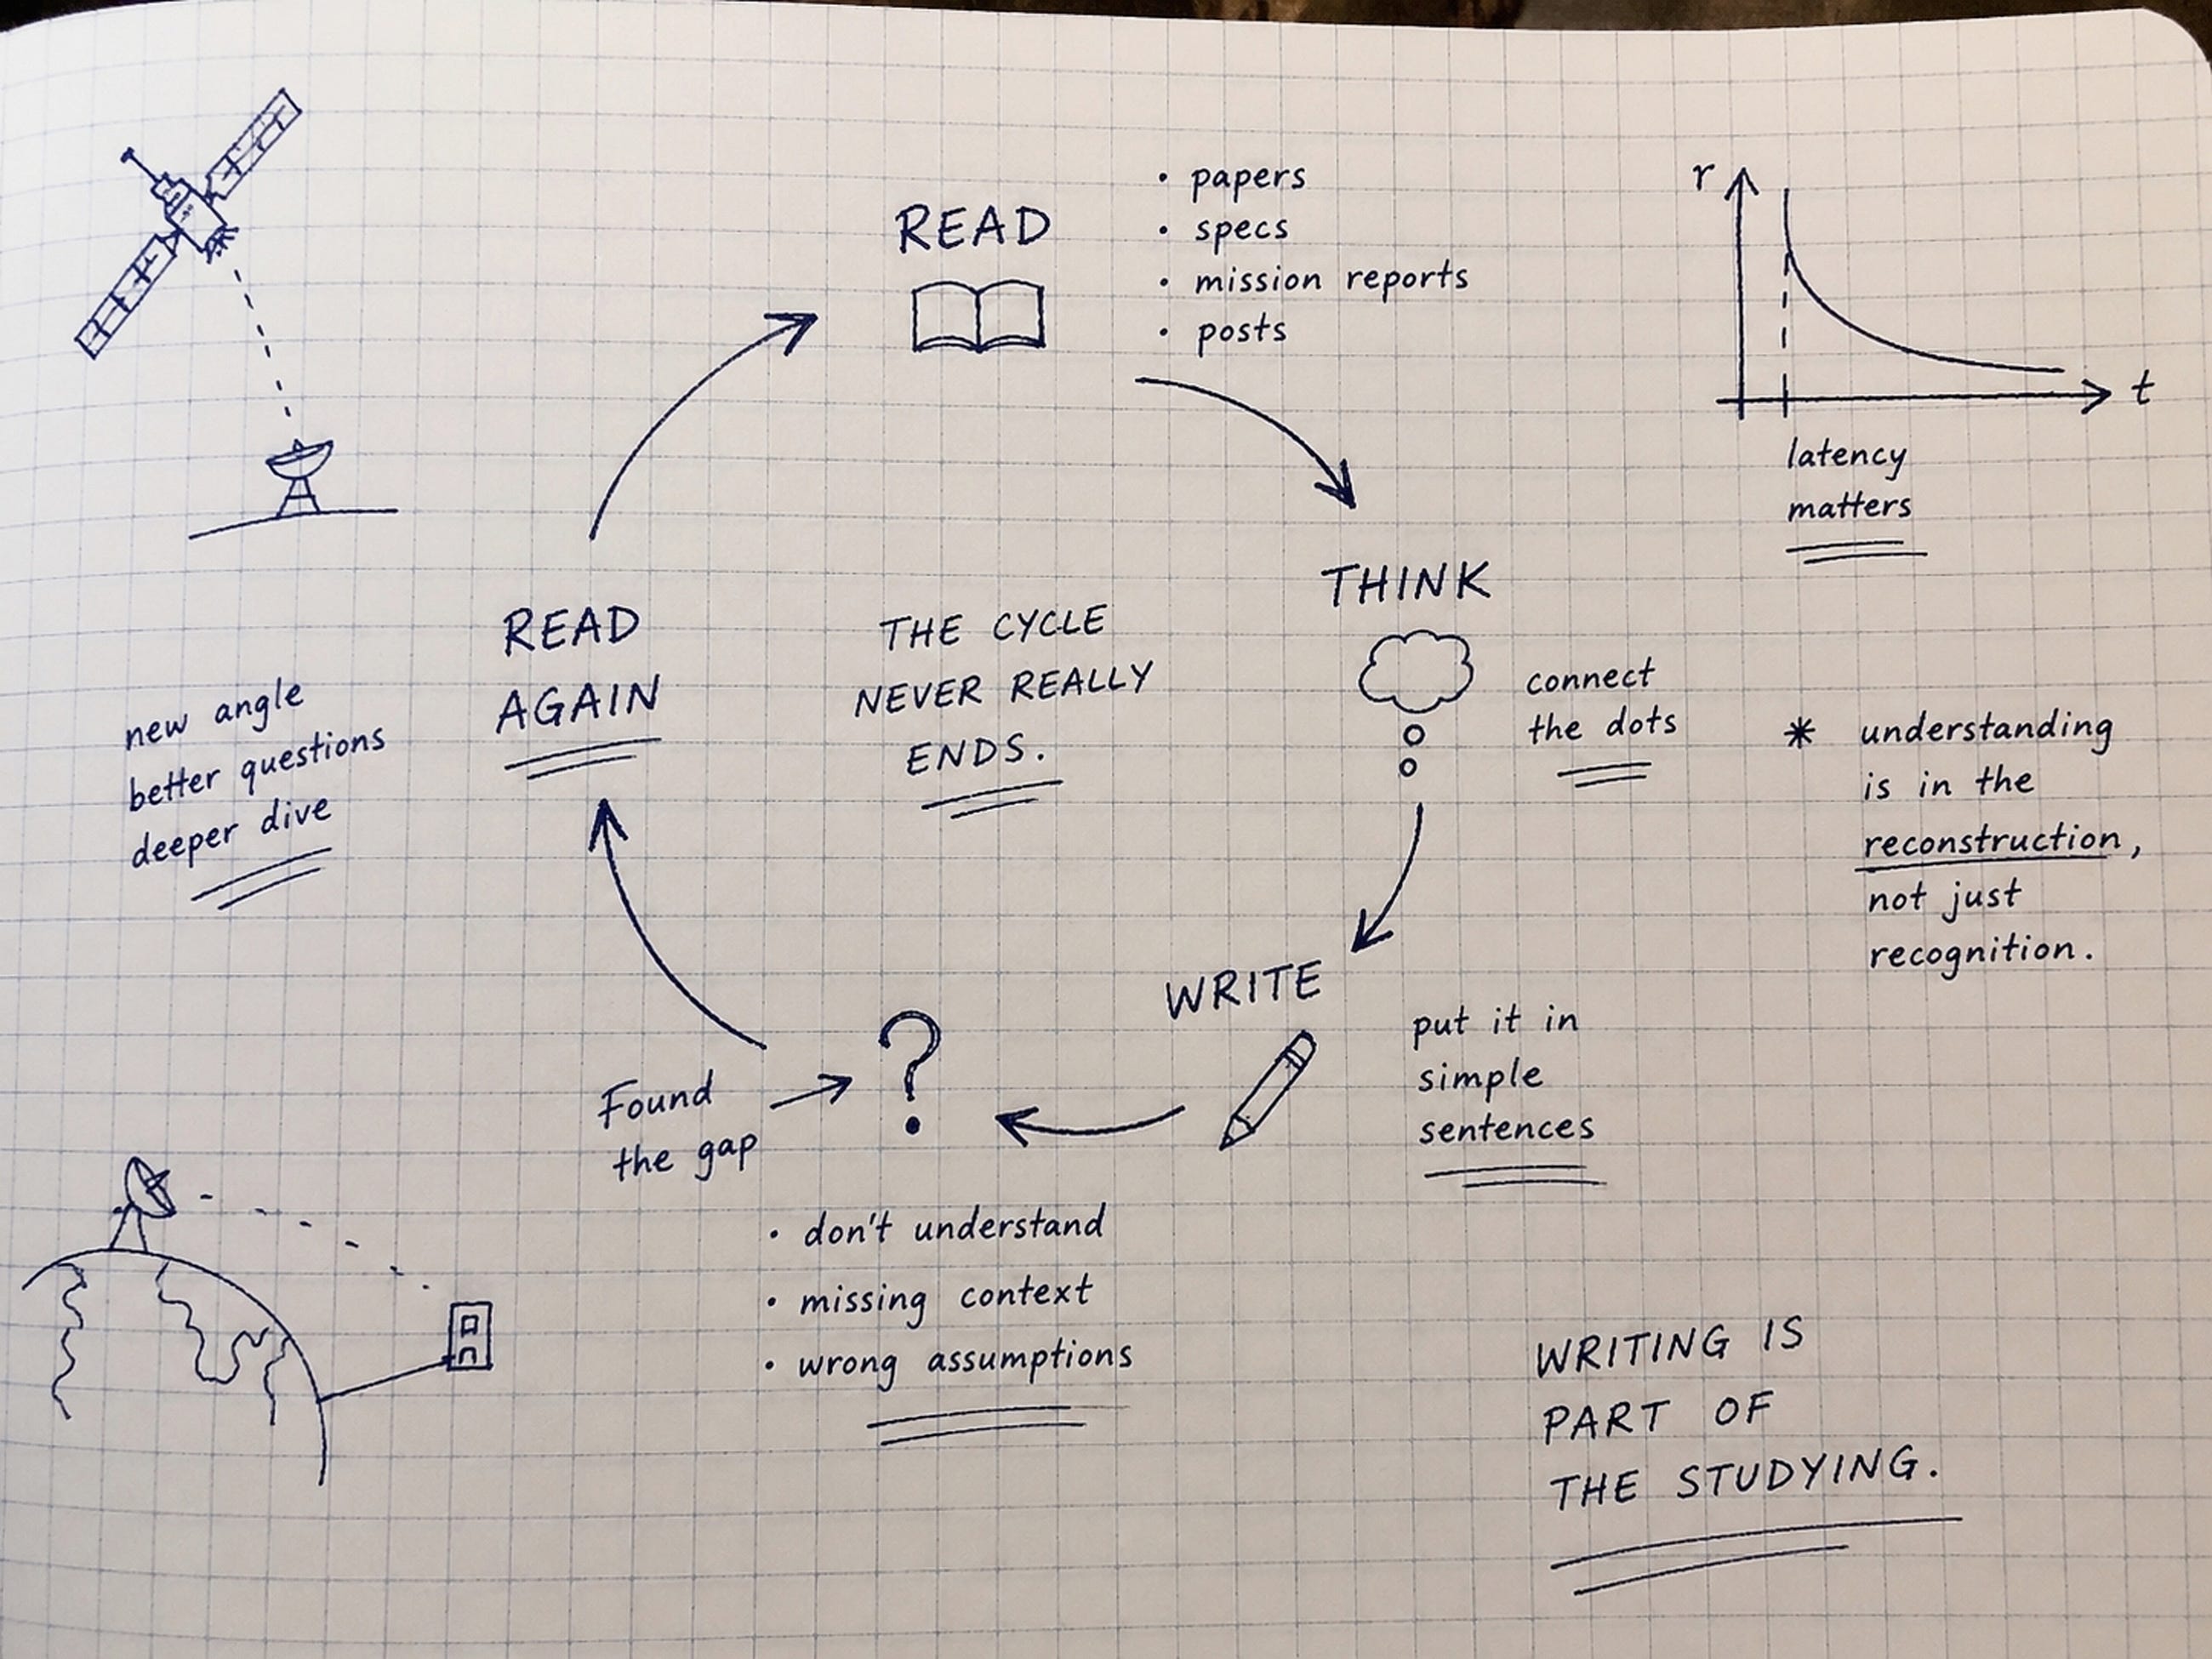 READ
• papers
• specs
• mission reports
• posts
r
t
latency
matters
THINK
connect
the dots
* understanding
is in the
reconstruction,
not just
recognition.
WRITE
put it in
simple
sentences
?
Found
the gap
• don't understand
• missing context
• wrong assumptions
READ
AGAIN
new angle
better questions
deeper dive
THE CYCLE
NEVER REALLY
ENDS.
WRITING IS
PART OF
THE STUDYING.